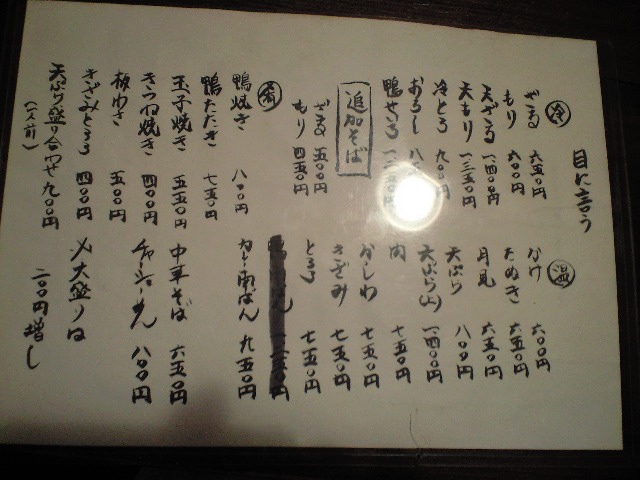 目に言う
冷
ざる 六五〇円
もり 六〇〇円
天ざる 一、四〇〇円
天もり 一、三五〇円
冷とろ 九〇〇円
おろし
鴨せいろ
追加そば
ざる 五〇〇円
もり 四五〇円
肴
鴨焼き 八〇〇円
鴨たたき 七五〇円
玉子焼き 五五〇円
きつね焼き 四〇〇円
板わさ 五〇〇円
きざみとろろ 四〇〇円
天ぷら盛り合わせ 九〇〇円
(一人前)
温
かけ 六〇〇円
たぬき 六五〇円
月見 六五〇円
天ぷら 八〇〇円
天ぷら(上) 一、四〇〇円
肉 七五〇円
かしわ 七五〇円
きざみ 七五〇円
とろろ 七五〇円
カレー南ばん 九五〇円
中華そば 六五〇円
チャーシューめん 八〇〇円
大盛りは
二〇〇円増し